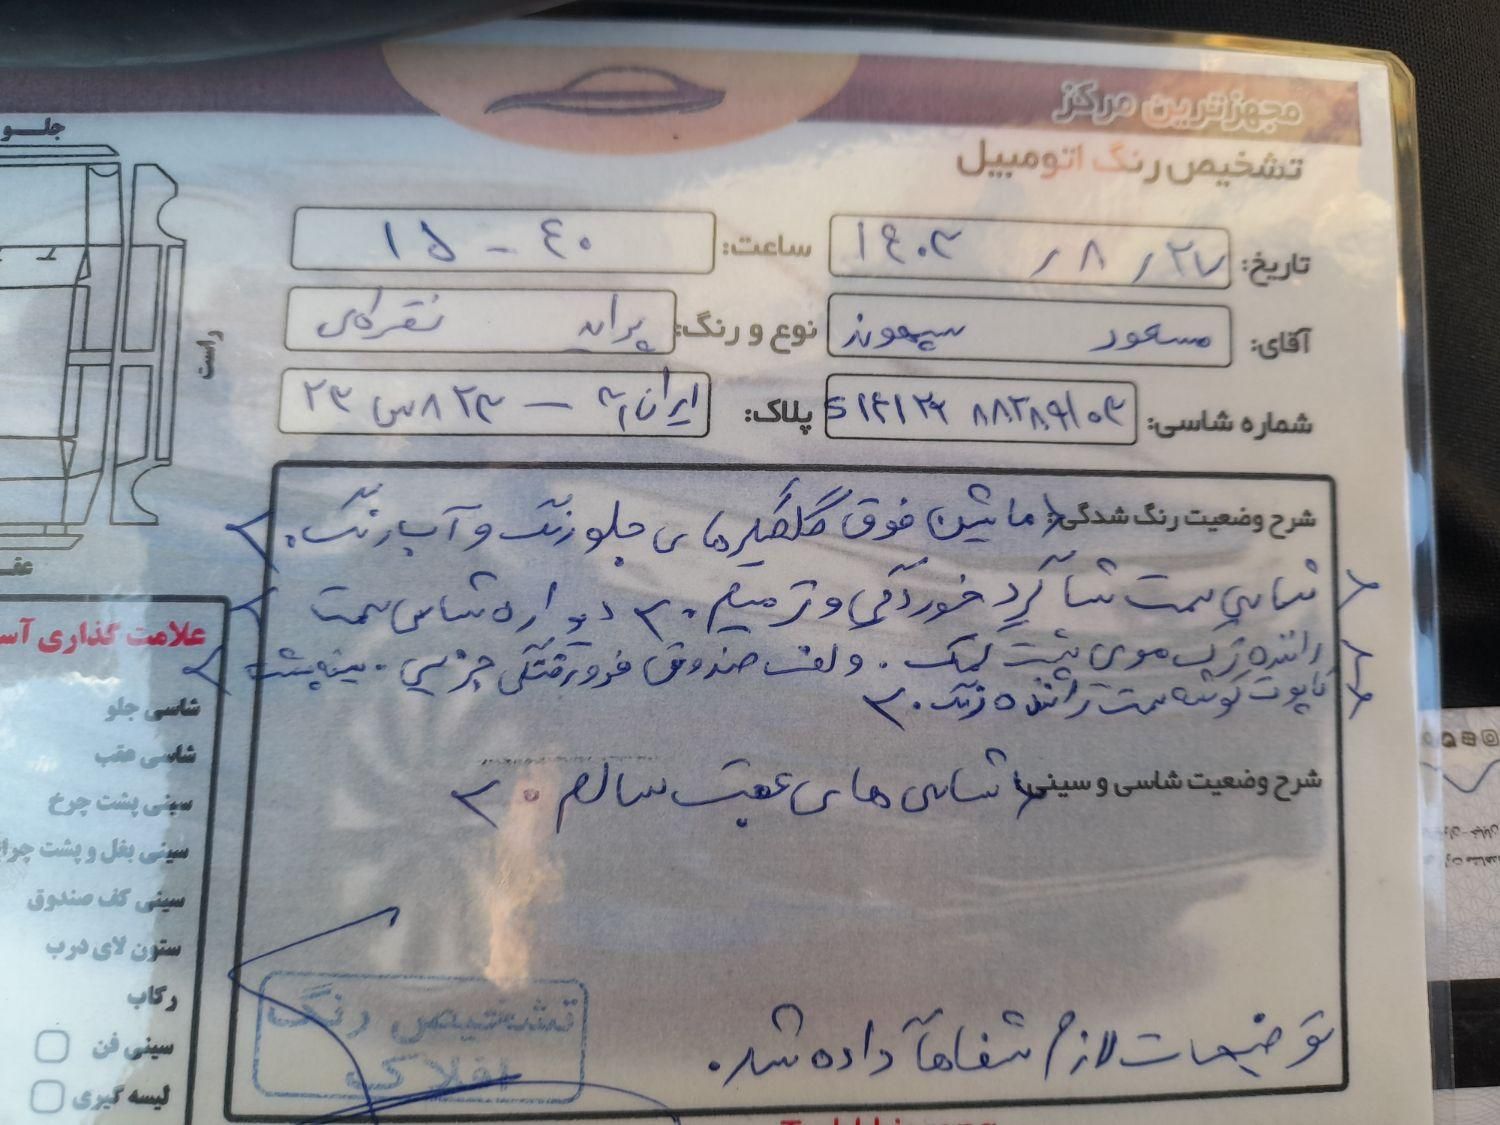 مجهزترین مرکز
تشخیص رنگ اتومبیل
جلو
تاریخ: ۱۴۰۳ / ۸ / ۲۷
ساعت: ۱۵ - ۴۰
آقای: مسعود سپهوند
نوع و رنگ: پراید نقره‌ای
شماره شاسی:
پلاک: ایران ۲۳ س ۸۲۳ —
راست
شرح وضعیت رنگ شدگی: ماشین فوق گلگیرهای جلو رنگ و آب رنگ.
شاسی سمت شاگرد خوردگی و ترمیم. دیواره شاسی سمت
راننده ترک موی پشت کمک. و لف صندوق فرورفتگی جزیی. سینه پشت
کاپوت گوشه سمت راننده رنگ.
شرح وضعیت شاسی و سینی: شاسی های عقب سالم.
توضیحات لازم شفاهاً داده شد.
تشخیص رنگ
افلاک
علامت گذاری
شاسی جلو
شاسی عقب
سینی پشت چرخ
سینی بغل و پشت
سینی کف صندوق
ستون لای درب
رکاب
سینی فن
لیسه گیری